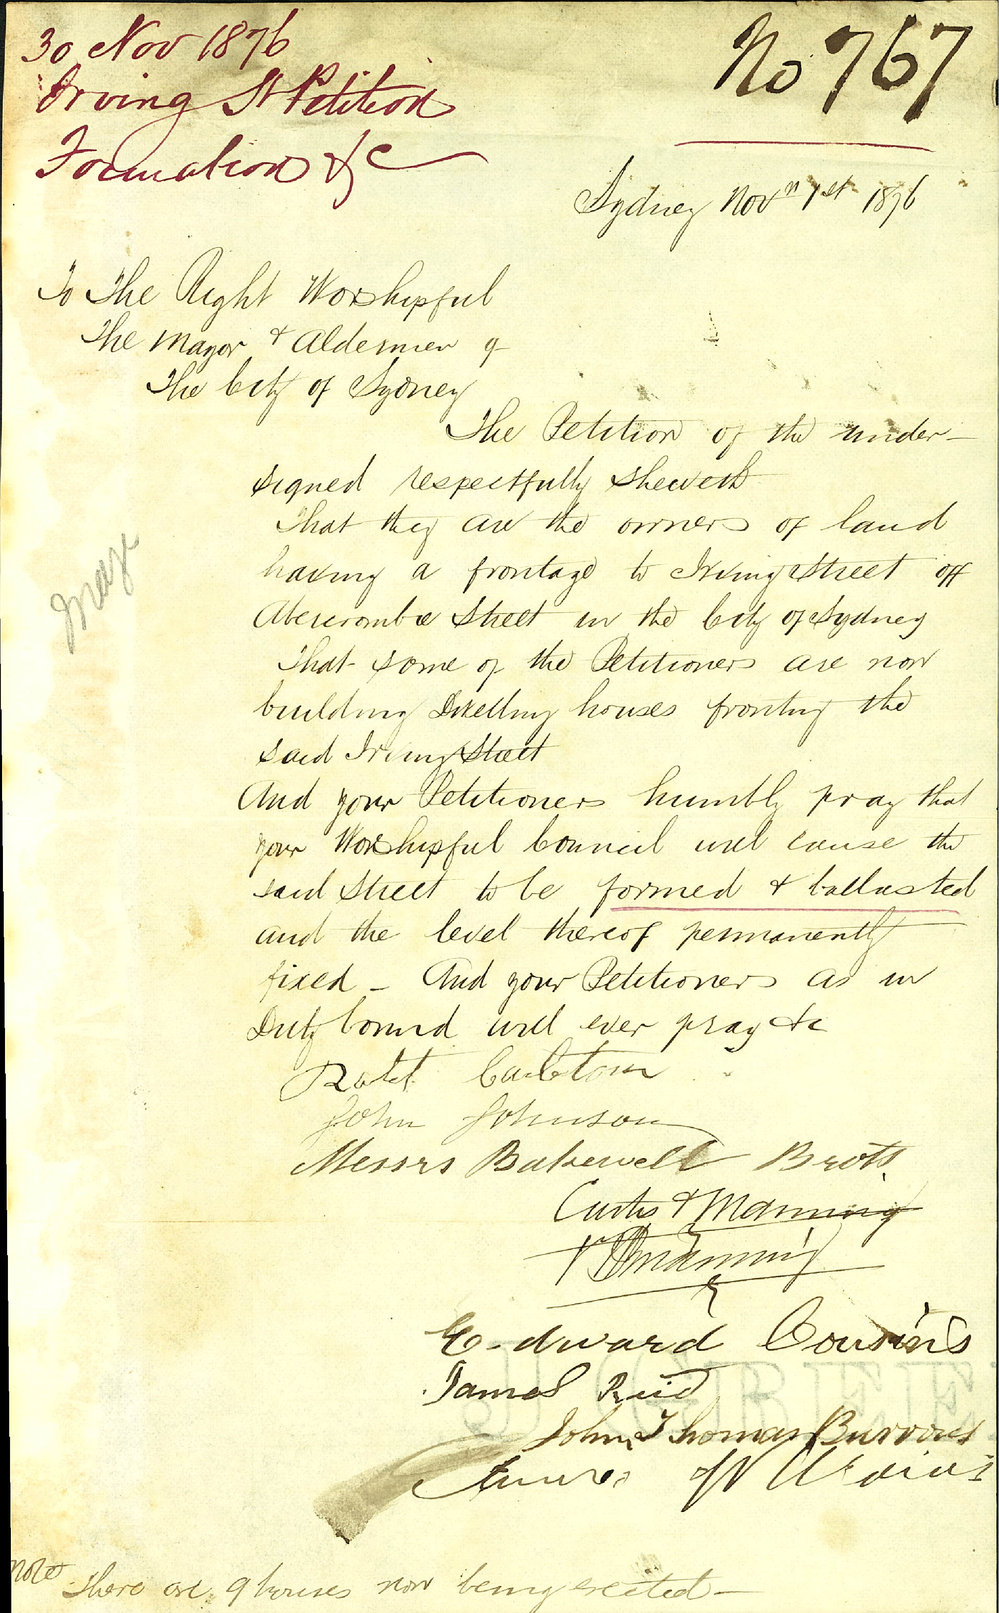 30 Nov 1876
Irving St Petition
Formation &c
No 767
Sydney Nov 1st 1876
To The Right Worshipful
The Mayor & Aldermen of
The City of Sydney
The Petition of the under-
signed respectfully sheweth
That they are the owners of land
having a frontage to Irving Street off
Abercrombie Street in the City of Sydney
That some of the Petitioners are now
building Dwelling houses fronting the
said Irving Street
And your Petitioners humbly pray that
your Worshipful Council will cause the
said Street to be formed & ballasted
and the level thereof permanently
fixed - And your Petitioners as in
Duty bound will ever pray &c
Robt
John Johnson
Messrs Bakewell Brots.
Curtis & Manning
Manning
Edward Cousins
James Reid
John Thomas Burrows
James
Note There are 9 houses now being erected -